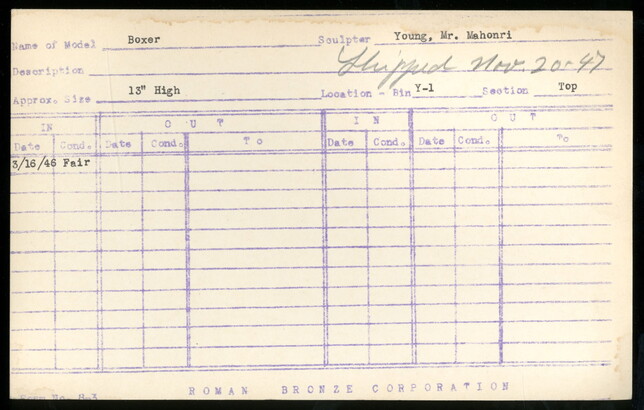 Name of Model Boxer Sculptor Young, Mr. Mahonri
Description Shipped Nov. 20-47
Approx. Size 13" High Location - Bin Y-1 Section Top
IN OUT IN OUT
Date Cond. Date Cond. To Date Cond. Date Cond. To
3/16/46 Fair
Form No. S-3 ROMAN BRONZE CORPORATION